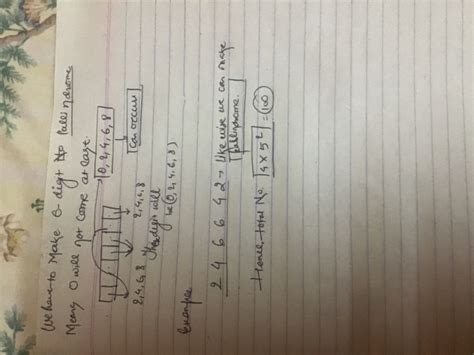 We have to Make 6-digit No Pallindrome
Means 0 will not come at last.
[0, 2, 4, 6, 8]
can occur
2,4,6,8
2,4,6,8
The digit will
be (0, 2, 4, 6, 8)
Example
2 4 6 6 4 2 → likewise we can make
pallindrome.
Hence, total No. 4 x 5² = 100